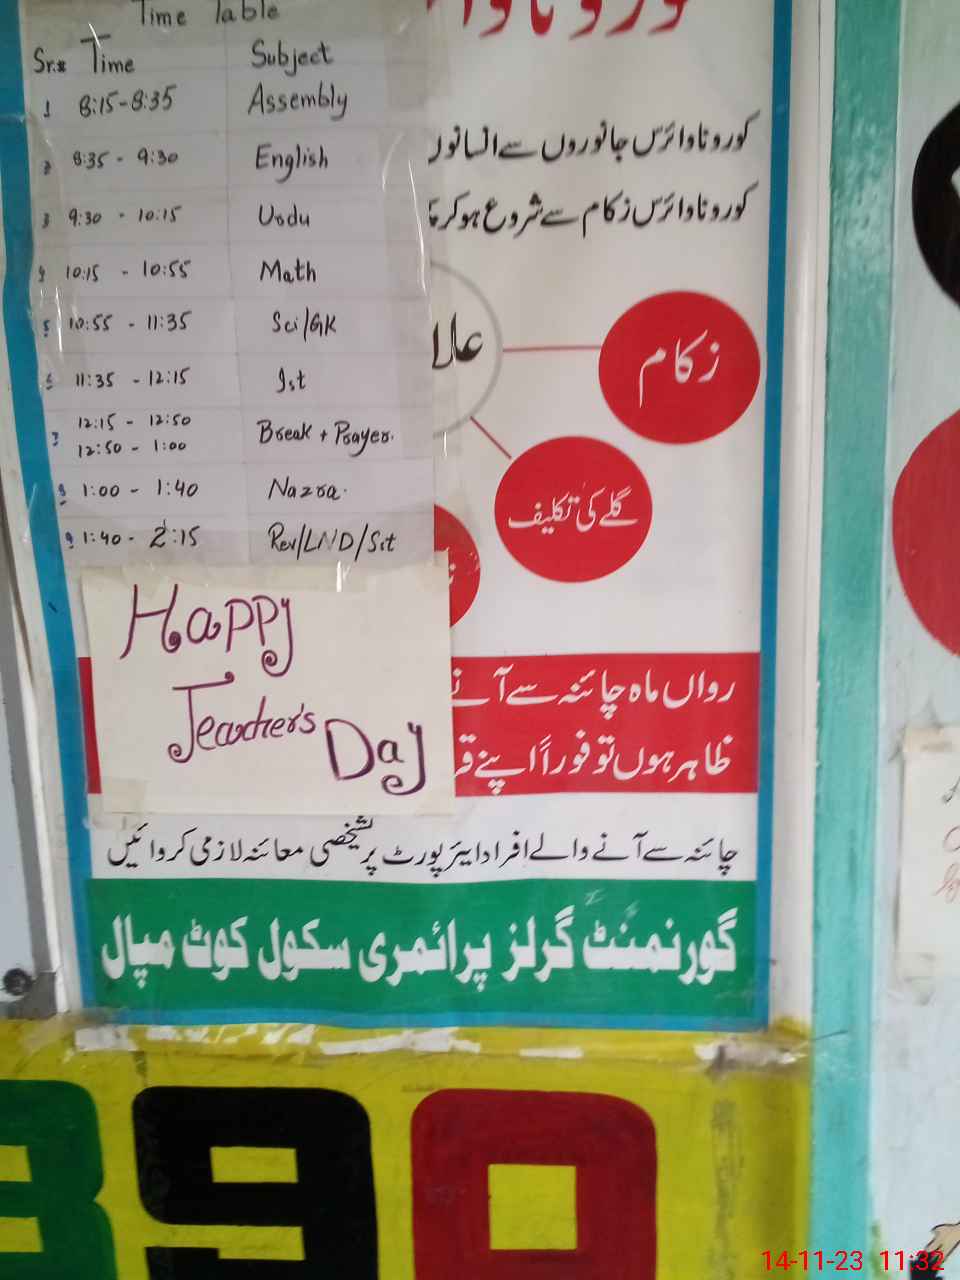 Time Table
Sr.# Time Subject
1 8:15-8:35 Assembly
2 8:35 - 9:30 English
3 9:30 - 10:15 Urdu
4 10:15 - 10:55 Math
5 10:55 - 11:35 Sci/GK
6 11:35 - 12:15 Ist
7 12:15 - 12:50 Break + Prayer.
12:50 - 1:00
8 1:00 - 1:40 Nazra.
9 1:40 - 2:15 Rev/LND/Sst
Happy
Teacher's
Day
کورونا وائرس جانوروں سے
کورونا وائرس زکام سے شروع ہو کر
زکام
گلے کی تکلیف
رواں ماہ چائنہ سے آنے
ظاہر ہوں تو فوراً اپنے
چائنہ سے آنے والے افراد ایئرپورٹ پر تشخیصی معائنہ لازمی کروائیں
گورنمنٹ گرلز پرائمری سکول کوٹ مپال
890
14-11-23 11:32